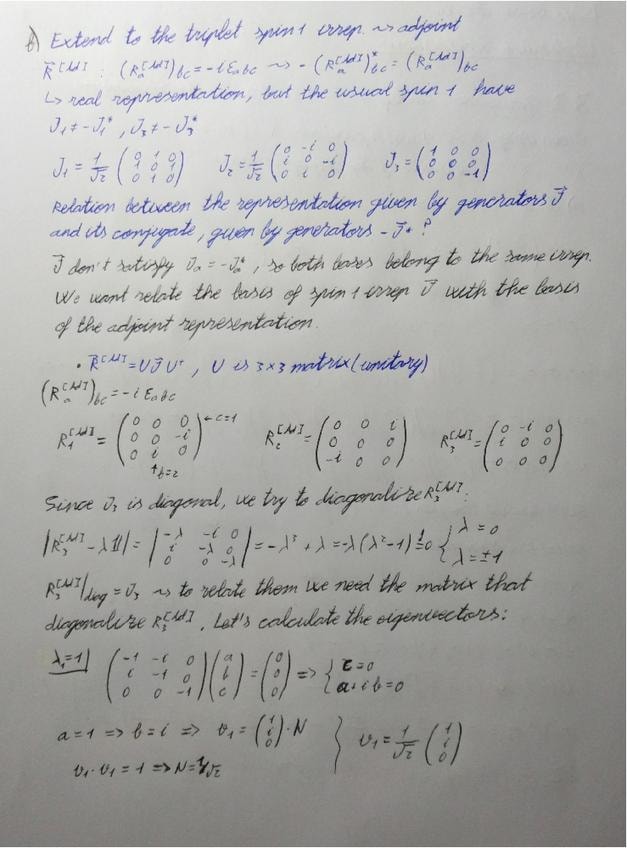 b) Extend to the triplet spin 1 irrep. ⇝ adjoint
R⃗^[Ad] : (R_a^[Ad])_bc = -i ε_abc ⇝ -(R_a^[Ad])*_bc = (R_a^[Ad])_bc
↳ real representation, but the usual spin 1 have
J_1 ≠ -J_1^*, J_3 ≠ -J_3^*
J_1 = 1/√2 (0 1 0; 1 0 1; 0 1 0) J_2 = 1/√2 (0 -i 0; i 0 -i; 0 i 0) J_3 = (1 0 0; 0 0 0; 0 0 -1)
Relation between the representation given by generators J⃗
and its conjugate, given by generators -J⃗*?
J⃗ don't satisfy J_a = -J_a^*, so both bases belong to the same irrep.
We want relate the basis of spin 1 irrep J⃗ with the basis
of the adjoint representation.
• R⃗^[Ad] = U J⃗ U†, U is 3×3 matrix (unitary)
(R_a^[Ad])_bc = -i ε_abc
R_1^[Ad] = (0 0 0; 0 0 -i; 0 i 0) ← c=1 R_2^[Ad] = (0 0 i; 0 0 0; -i 0 0) R_3^[Ad] = (0 -i 0; i 0 0; 0 0 0)
↑ b=2
Since J_3 is diagonal, we try to diagonalize R_3^[Ad]:
|R_3^[Ad] - λ𝟙| = |-λ -i 0; i -λ 0; 0 0 -λ| = -λ³ + λ = -λ(λ²-1) =! 0 { λ = 0; λ = ±1
R_3^[Ad]|_diag = J_3 ⇝ to relate them we need the matrix that
diagonalize R_3^[Ad]. Let's calculate the eigenvectors:
λ_1=1| (-1 -i 0; i -1 0; 0 0 -1) (a; b; c) = (0; 0; 0) ⇒ { c=0; a+ib=0
a=1 ⇒ b=i ⇒ v_1 = (1; i; 0)·N } v_1 = 1/√2 (1; i; 0)
v_1·v_1 = 1 ⇒ N = 1/√2